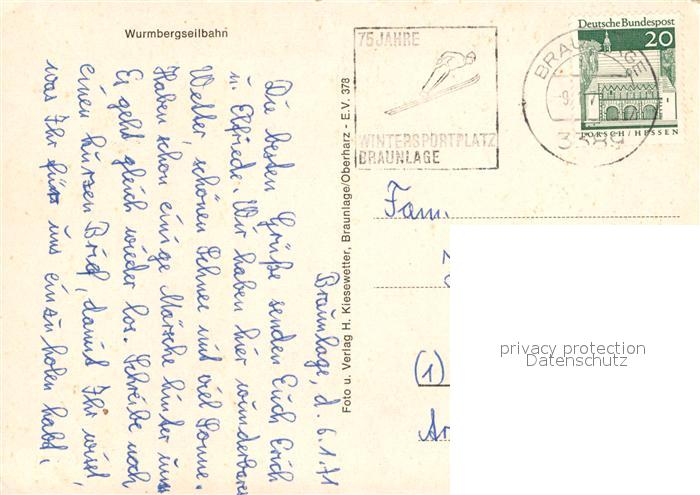 Wurmbergseilbahn
75 JAHRE
WINTERSPORTPLATZ
BRAUNLAGE
BRAUNLAGE
3389
Deutsche Bundespost
20
LORSCH/HESSEN
Foto u. Verlag H. Kiesewetter, Braunlage/Oberharz - E.V. 378
Braunlage, d. 6.1.71
Die besten Grüße senden Euch Erich
u. Elfriede. Wir haben hier wunderbares
Wetter, schönen Schnee und viel Sonne.
Haben schon einige Märsche hinter uns
Es geht gleich wieder los. Schreibe noch
einen kurzen Brief, damit Ihr wisst,
was Ihr für uns einzuholen habt.
Fam.
(1)
privacy protection
Datenschutz